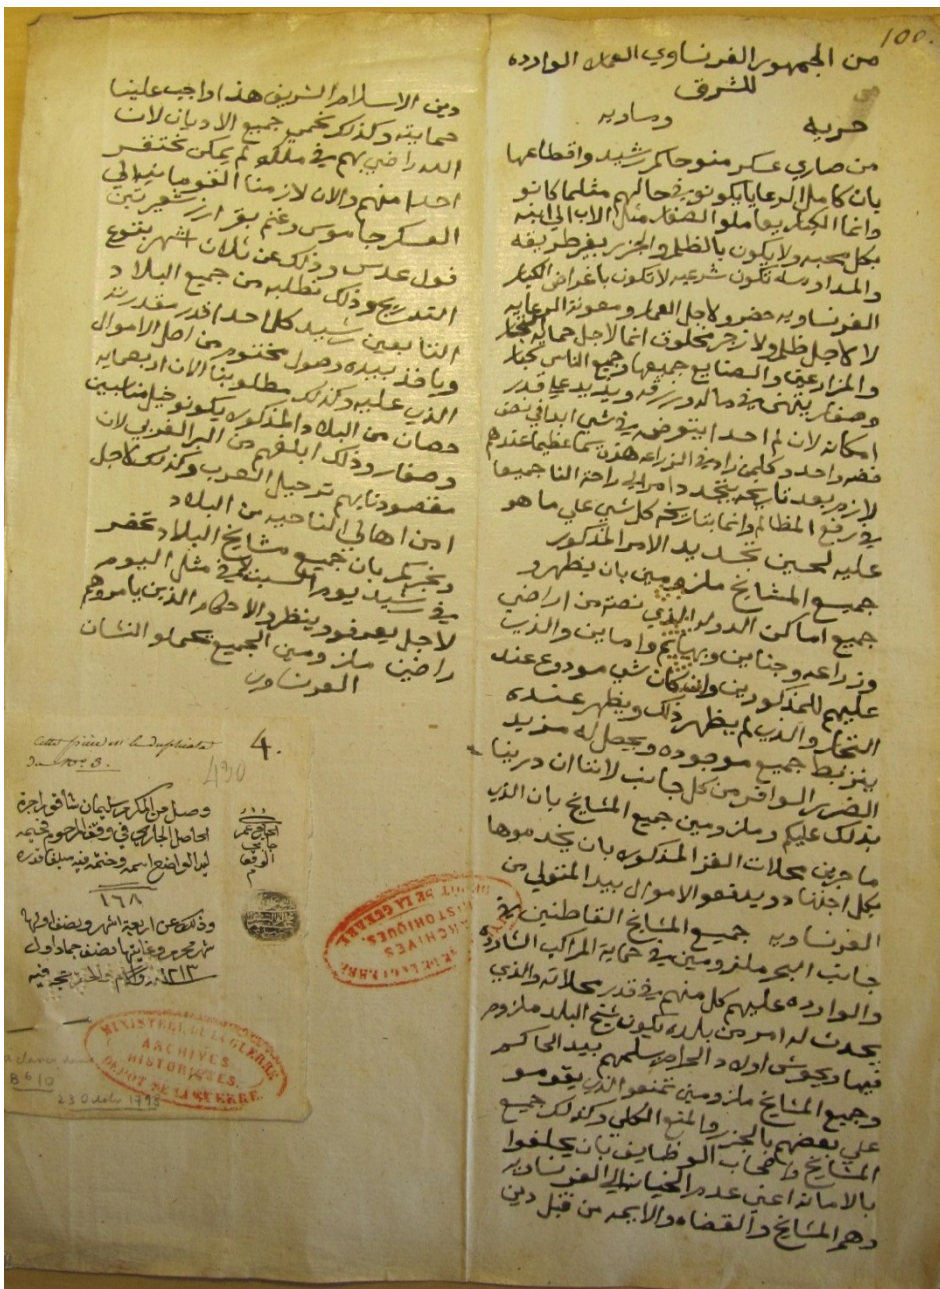 100.
من الجمهور الفرنساوي العمله الوارده
للشرق
حريه ومساويه
من صاري عسكر منو حاكم رشيد واقطاعها
بان كامل الرعايا يكونو في حالهم مثلما كانو
وانما الكبار يعاملوا الصغار مثل الاب الي ابنه
بكل محبه ولا يكون بالظلم والجزر بغير طريقه
والمداوسه تكون شرعيه لا تكون باغراض الكبار
الفرنساويه حضرو لاجل العمار ومعونة الرعايه
لا لاجل ظلم ولا زجر مخلوق انما لاجل حماية التجار
والمزارعين والصنايع جميعها وجميع الناس كبار
وصغار يتهنى في ماله ورزقه ويزيد علي قدر
امكانه لان لم احدا يتعرضه في شي ابدا في نصف
فضه واحد وكلمن زاد في الزراعه
لازم بعد تاريخه يتجدد امر الى راحة الناس جميعا
في رفع المظالم وانما بتاريخه كل شي علي ما هو
عليه لحين تجديد الامر المذكور
جميع المشايخ ملزومين بان يظهرو
جميع اماكن الدوله الذي من اراضي
وزراعه وجناين وبهايم واماين والذي
عليهم للمذكورين وان كان شي مودوع عند
التجار والذي لم يظهر ذلك ويظهر عنده
ينزبط جميع موجوده ويحصل له مزيد
الضرر الوافر من كل جانب لاننا ان درينا
بذلك عليكم وملزومين جميع المشايخ بان الذي
ماجرين محلات الغز المذكوره بان يخدموها
بكل اجتهاد ويدفعو الاموال بيد المتولي من
الفرنساويه جميع المشايخ القاطنين في
جانب البحر ملزومين في حماية المراكب الشارده
والوارده عليهم كل منهم في قدر محلاته والذي
يحدث له امر من بلده يكون شيخ البلد ملزوم
فيها ويحوش اولاد الحرام يسلمهم بيد الحاكم
وجميع المشايخ ملزومين تمنعو الذي يقومو
علي بعضهم بالجزر والمنع الكلي وكذلك جميع
المشايخ واصحاب الوظايف بان يحلفوا
بالامانه اعني عدم الخيانه الي الفرنساويه
وهم المشايخ والقضاه والايمه من قبل دين
دين الاسلام الشريف هذا واجب علينا
حمايته وكذلك نحمي جميع الاديان لان
الله راضي بهم في ملكه ولم يمكن نحتقر
احدا منهم والان لازمنا القومانيه الي
العسكر جاموس وغنم بقر ارز شعير تبن
فول عدس وذلك عن ثلاث اشهر بنوع
التدريج وذلك نطلبه من جميع البلاد
التابعين رشيد كل احدا قدر مقدرته
وياخذ بيده وصول مختوم من اصل الاموال
الذي عليه وكذلك مطلوبنا الان اربعمايه
حصان من البلاد المذكوره يكونو خيل مناسبين
وصغار وذلك ابلغهم من البر الغربي لان
مقصودنا بهم ترحيل العرب وكذلك لاجل
امن اهالي الناحيه من البلاد
ونخبركم بان جميع مشايخ البلاد تحضر
في رشيد يوم السبت في مثل اليوم
لاجل يعرفو وينظرو الاحكام الذين يامروهم
راضين ملزومين الجميع تحملو النشان
الفرنساوي
Cette pièce est le duplicata
du No. 3.
4.
430
وصل من المكرم سليمان شافعي اجرة
الحاصل الجاري في وقف المرحوم
لدا الواضع اسمه وختمه فيه مبلغا قدره
١٦٨
وذلك عن اربعة اشهر ونصف اولها
شهر محرم وغايتها نصف جماد اول
١٢١٣
B 6 10
23 Octobre 1798
MINISTERE DE LA GUERRE
ARCHIVES
HISTORIQUES.
DEPOT DE LA GUERRE.
DEPOT DE LA GUERRE
HISTORIQUES.
ARCHIVES